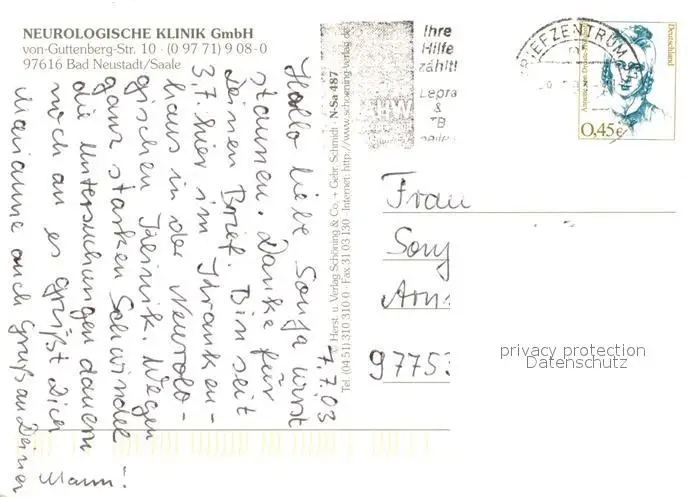 NEUROLOGISCHE KLINIK GmbH
von-Guttenberg-Str. 10 · (0 97 71) 9 08-0
97616 Bad Neustadt/Saale
7.7.03
Hallo liebe Sonja wirst
staunen. Danke für
Deinen Brief. Bin seit
3.7. hier im Kranken-
haus in der Neurolo-
gischen Kleinik. Wegen
ganz starken Schwindel
die Untersuchungen dauern
noch an es grüßt Dich
Marianne auch Gruß an Deinen
Mann!
Herst. u. Verlag Schöning & Co. + Gebr. Schmidt · N-Sa 487
Tel. (04 51) 310 310-0 · Fax 31 03 130 · Internet: http://www.schoening-verlag.de
Ihre
Hilfe
zählt!
Lepra
&
TB
BRIEFZENTRUM
Deutschland
Annette von Droste-
0,45€
Frau
Sony
97753
privacy protection
Datenschutz